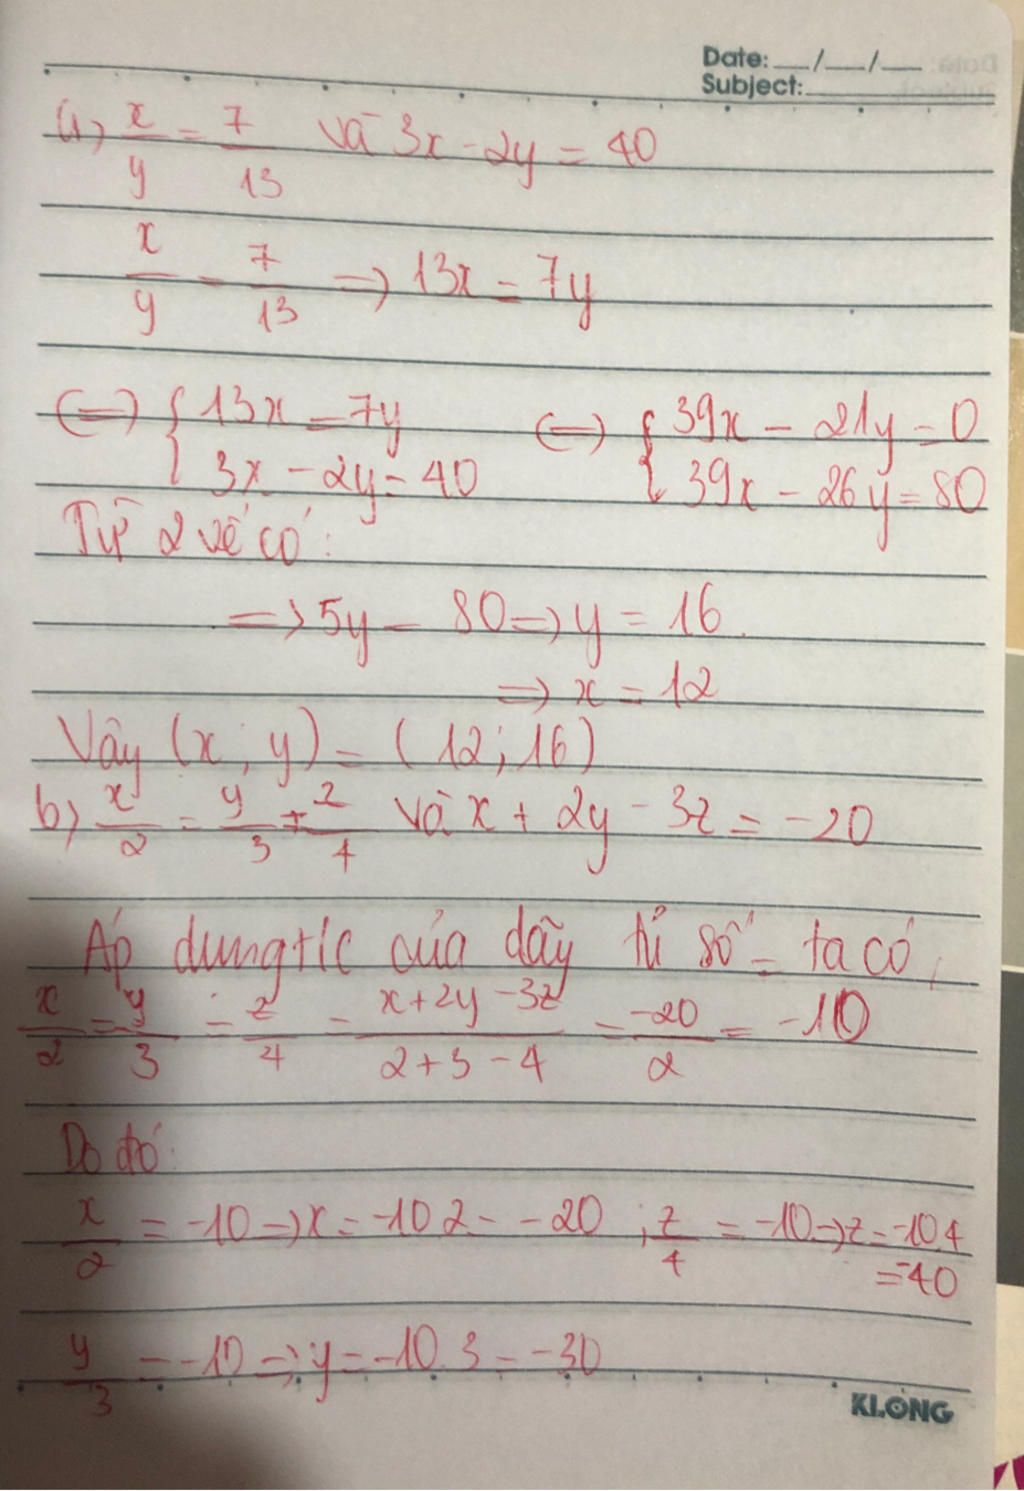 Date: __/__/__
Subject:
a) x/y = 7/13 và 3x - 2y = 40
x/y = 7/13 => 13x = 7y
<=> { 13x = 7y <=> { 39x - 21y = 0
3x - 2y = 40 39x - 26y = 80
Từ 2 vế có:
=> 5y = 80 => y = 16.
=> x = 12
Vây (x; y) = (12; 16)
b) x/2 = y/3 = z/4 và x + 2y - 3z = -20
Áp dung t/c của dãy tỉ số = ta có,
x/2 = y/3 = z/4 = x+2y-3z/2+3-4 = -20/2 = -10
Do đó:
x/2 = -10 => x = -10.2 = -20 ; z/4 = -10 => z = -10.4
= -40
y/3 = -10 => y = -10.3 = -30
KLONG